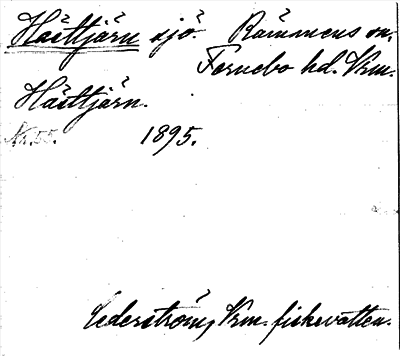 Hästtjärn sjö. Rämmens sn.
Fernebo hd. Vrm.
Hästtjärn.
Nr. 55. 1895.
Cederström, Vrm. fiskevatten.